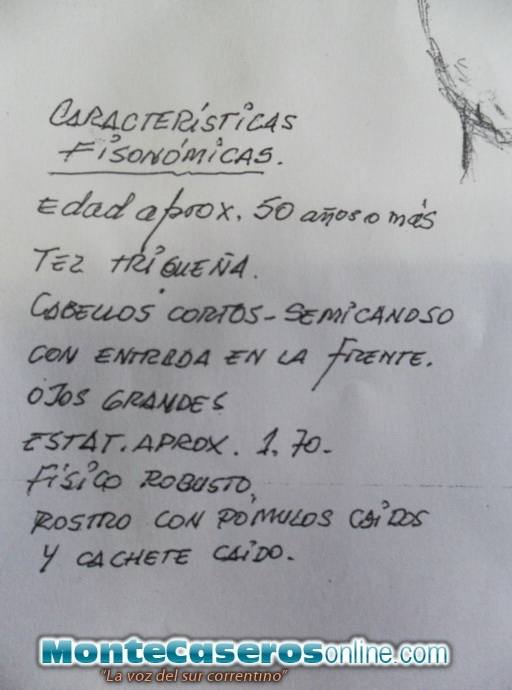 CARACTERÍSTICAS
FISONÓMICAS.
Edad aprox. 50 años o más
TEZ TRIGUEÑA.
CABELLOS CORTOS - SEMICANOSO
CON ENTRADA EN LA FRENTE.
OJOS GRANDES
ESTAT. APROX. 1,70.-
FÍSICO ROBUSTO,
ROSTRO CON PÓMULOS CAÍDOS
Y CACHETE CAÍDO.
MonteCaserosonline.com
"La voz del sur correntino"